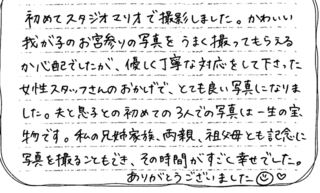 初めてスタジオマリオで撮影しました。かわいい
我が子のお宮参りの写真をうまく撮ってもらえる
か心配でしたが、優しく丁寧な対応をして下さった
女性スタッフさんのおかげで、とても良い写真になりま
した。夫と息子との初めての3人での写真は一生の宝
物です。私の兄姉家族、両親、祖父母とも記念に
写真を撮ることもでき、その時間がすごく幸せでした。
ありがとうございました☺♡